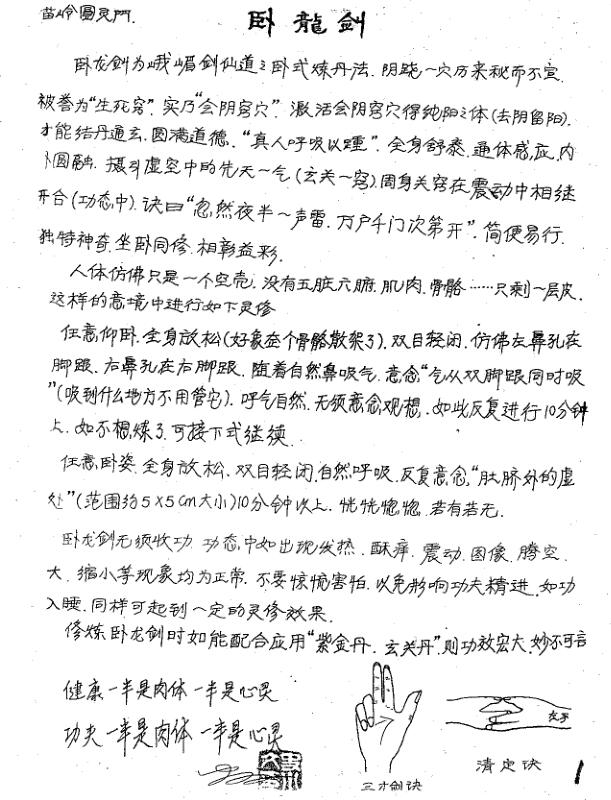 苗岭圆灵門.
卧龍劍
卧龙剑为峨嵋剑仙道之卧式炼丹法.阴跷一穴历来秘而不宣.
被誉为“生死窍”.实乃“会阴窍穴”.激活会阴窍穴得纯阳之体(去阴留阳).
才能结丹通玄.圆满道德.“真人呼吸以踵”.全身舒泰.通体感应.内
外圆融.摄引虚空中的先天一气(玄关一窍).周身关窍在震动中相继
开合(功态中).诀曰“忽然夜半一声雷.万户千门次第开”.简便易行.
独特神奇.坐卧同修.相彰益彩.
人体仿佛只是一个空壳.没有五脏六腑.肌肉.骨骼……只剩一层皮.
这样的意境中进行如下灵修
任意仰卧.全身放松(好象整个骨骼散架了).双目轻闭.仿佛左鼻孔在
脚跟.右鼻孔在右脚跟.随着自然鼻吸气.意念“气从双脚跟同时吸
”(吸到什么地方不用管它).呼气自然.无须意念观想.如此反复进行10分钟
上.如不想炼了.可接下式继续.
任意卧姿.全身放松.双目轻闭.自然呼吸.反复意念“肚脐外的虚
处”(范围约5X5cm大小)10分钟以上.恍恍惚惚.若有若无.
卧龙剑无须收功.功态中如出现发热.酥痒.震动.图像.腾空.
大.缩小等现象均为正常.不要惊慌害怕.以免影响功夫精进.如功
入睡.同样可起到一定的灵修效果.
修炼卧龙剑时如能配合应用“紫金丹.玄关丹”.则功效宏大.妙不可言
健康一半是肉体一半是心灵
功夫一半是肉体一半是心灵
女子
三才剑诀
清定诀
1